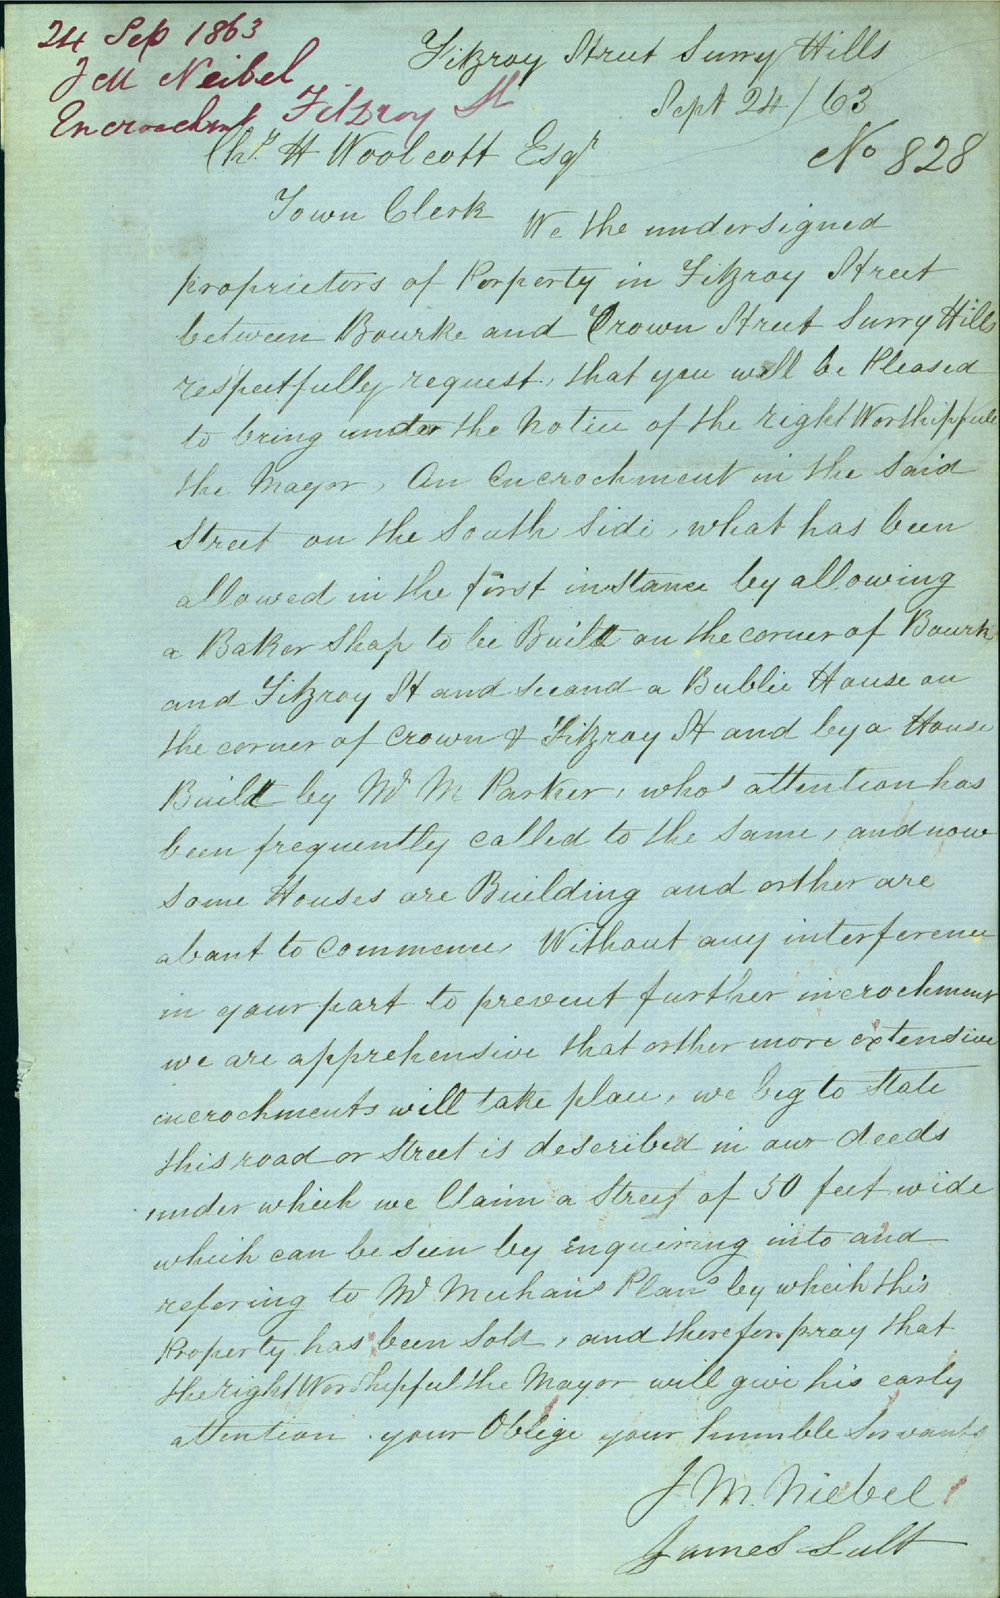 24 Sep 1863
J M Neibel
Encroachmt Fitzroy St
Fitzroy Street Surry Hills
Sept 24/63
No 828
Chs. H Woolcott Esqr
Town Clerk
We the undersigned
proprietors of Porperty in Fitzroy Street
between Bourke and Crown Street Surry Hills
respectfully request, that you will be Pleased
to bring under the Notice of the right Worshipfull
the Mayor, An encrochment in the said
Street on the South Side, what has been
allowed in the first instance by allowing
a Baker Shop to be Built on the corner of Bourk
and Fitzroy St and second a Bublic House on
the corner of Crown & Fitzroy St and by a House
Built by Mr M Parker, whos attention has
been frequently called to the same, and now
some Houses are Building and orther are
abant to commence, Without any interference
in your part to prevent further incrochment
we are apprehensive that orther more extensive
incrochments will take place, we beg to State
this road or Street is described in our deeds
under which we Claim a Street of 50 feet wide
wheih can be seen by enquiering into and
refering to Mr Meehans Plans by wheih this
Property has been Sold, and therefor pray that
the right Worshipful the Mayor will give his early
attention your Oblige your humble Servants
J M. Niebel
James Sult